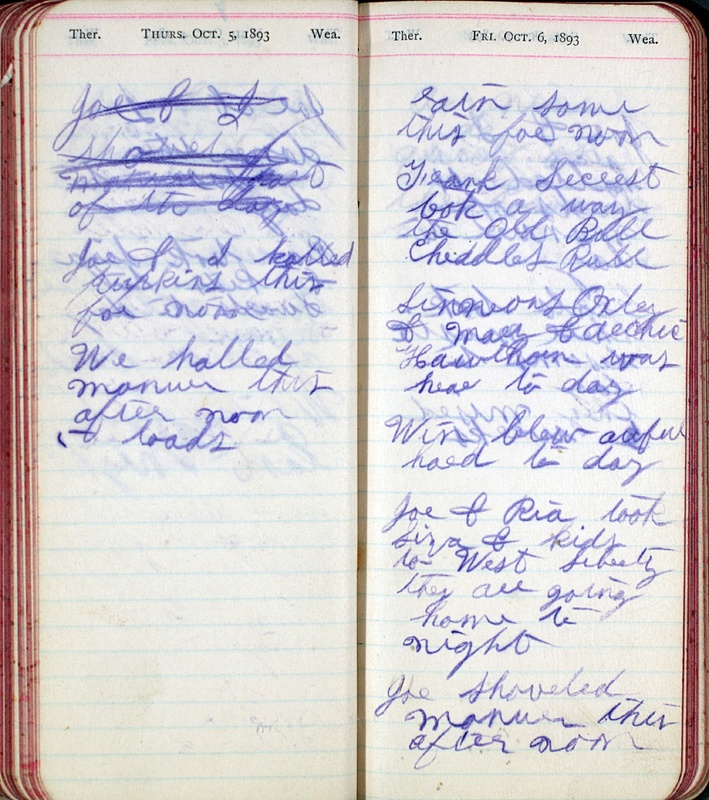 Ther. THURS. OCT. 5, 1893 Wea.
Joe & I
shoveled
manuer
of the
Joe & I halled
punkins this
for noon
We halled
manuer this
after noon
5 loads
Ther. FRI. OCT. 6, 1893 Wea.
rain some
this foe noon
Frank Secrest
took a way
the Old Bull
Cheddles Bull
Simmons Oxley
& Maer & Aechie
Hawthorn was
heae to day
Win blew awful
haed to day
Joe & Ria took
Liza & kids
to West Liberty
they are going
home to
night
Joe shoveled
manuer this
after noon